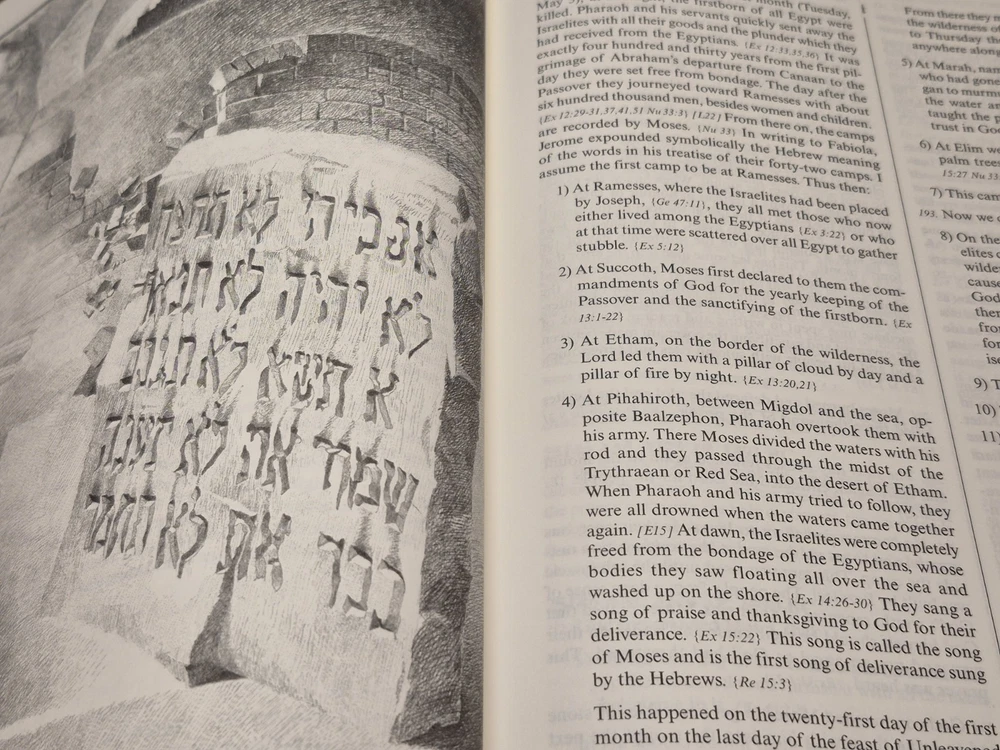 אנכי ה' לא תרצח
לא יהיה לא תנאף
א תשא לא תגנב
שמור את לא תענה
כבד את לא תחמד
month (Tuesday,
firstborn of all Egypt were
killed. Pharaoh and his servants quickly sent away the
Israelites with all their goods and the plunder which they
had received from the Egyptians. {Ex 12:33,35,36} It was
exactly four hundred and thirty years from the first pil-
grimage of Abraham's departure from Canaan to the
day they were set free from bondage. The day after the
Passover they journeyed toward Ramesses with about
six hundred thousand men, besides women and children.
{Ex 12:29-31,37,41,51 Nu 33:3} [L22] From there on, the camps
are recorded by Moses. {Nu 33} In writing to Fabiola,
Jerome expounded symbolically the Hebrew meaning
of the words in his treatise of their forty-two camps. I
assume the first camp to be at Ramesses. Thus then:
1) At Ramesses, where the Israelites had been placed
by Joseph, {Ge 47:11}, they all met those who now
either lived among the Egyptians {Ex 3:22} or who
at that time were scattered over all Egypt to gather
stubble. {Ex 5:12}
2) At Succoth, Moses first declared to them the com-
mandments of God for the yearly keeping of the
Passover and the sanctifying of the firstborn. {Ex
13:1-22}
3) At Etham, on the border of the wilderness, the
Lord led them with a pillar of cloud by day and a
pillar of fire by night. {Ex 13:20,21}
4) At Pihahiroth, between Migdol and the sea, op-
posite Baalzephon, Pharaoh overtook them with
his army. There Moses divided the waters with his
rod and they passed through the midst of the
Trythraean or Red Sea, into the desert of Etham.
When Pharaoh and his army tried to follow, they
were all drowned when the waters came together
again. [E15] At dawn, the Israelites were completely
freed from the bondage of the Egyptians, whose
bodies they saw floating all over the sea and
washed up on the shore. {Ex 14:26-30} They sang a
song of praise and thanksgiving to God for their
deliverance. {Ex 15:22} This song is called the song
of Moses and is the first song of deliverance sung
by the Hebrews. {Re 15:3}
This happened on the twenty-first day of the first
month on the last day of the feast of
From there they
the wilderness o
to Thursday th
anywhere alon
5) At Marah, nam
who had gone
gan to murm
the water a
taught the p
trust in God
6) At Elim we
palm trees
15:27 Nu 33
7) This cam
193. Now we
8) On the
elites
wilde
cause
God
ther
fro
for
is
9) T
10)
11